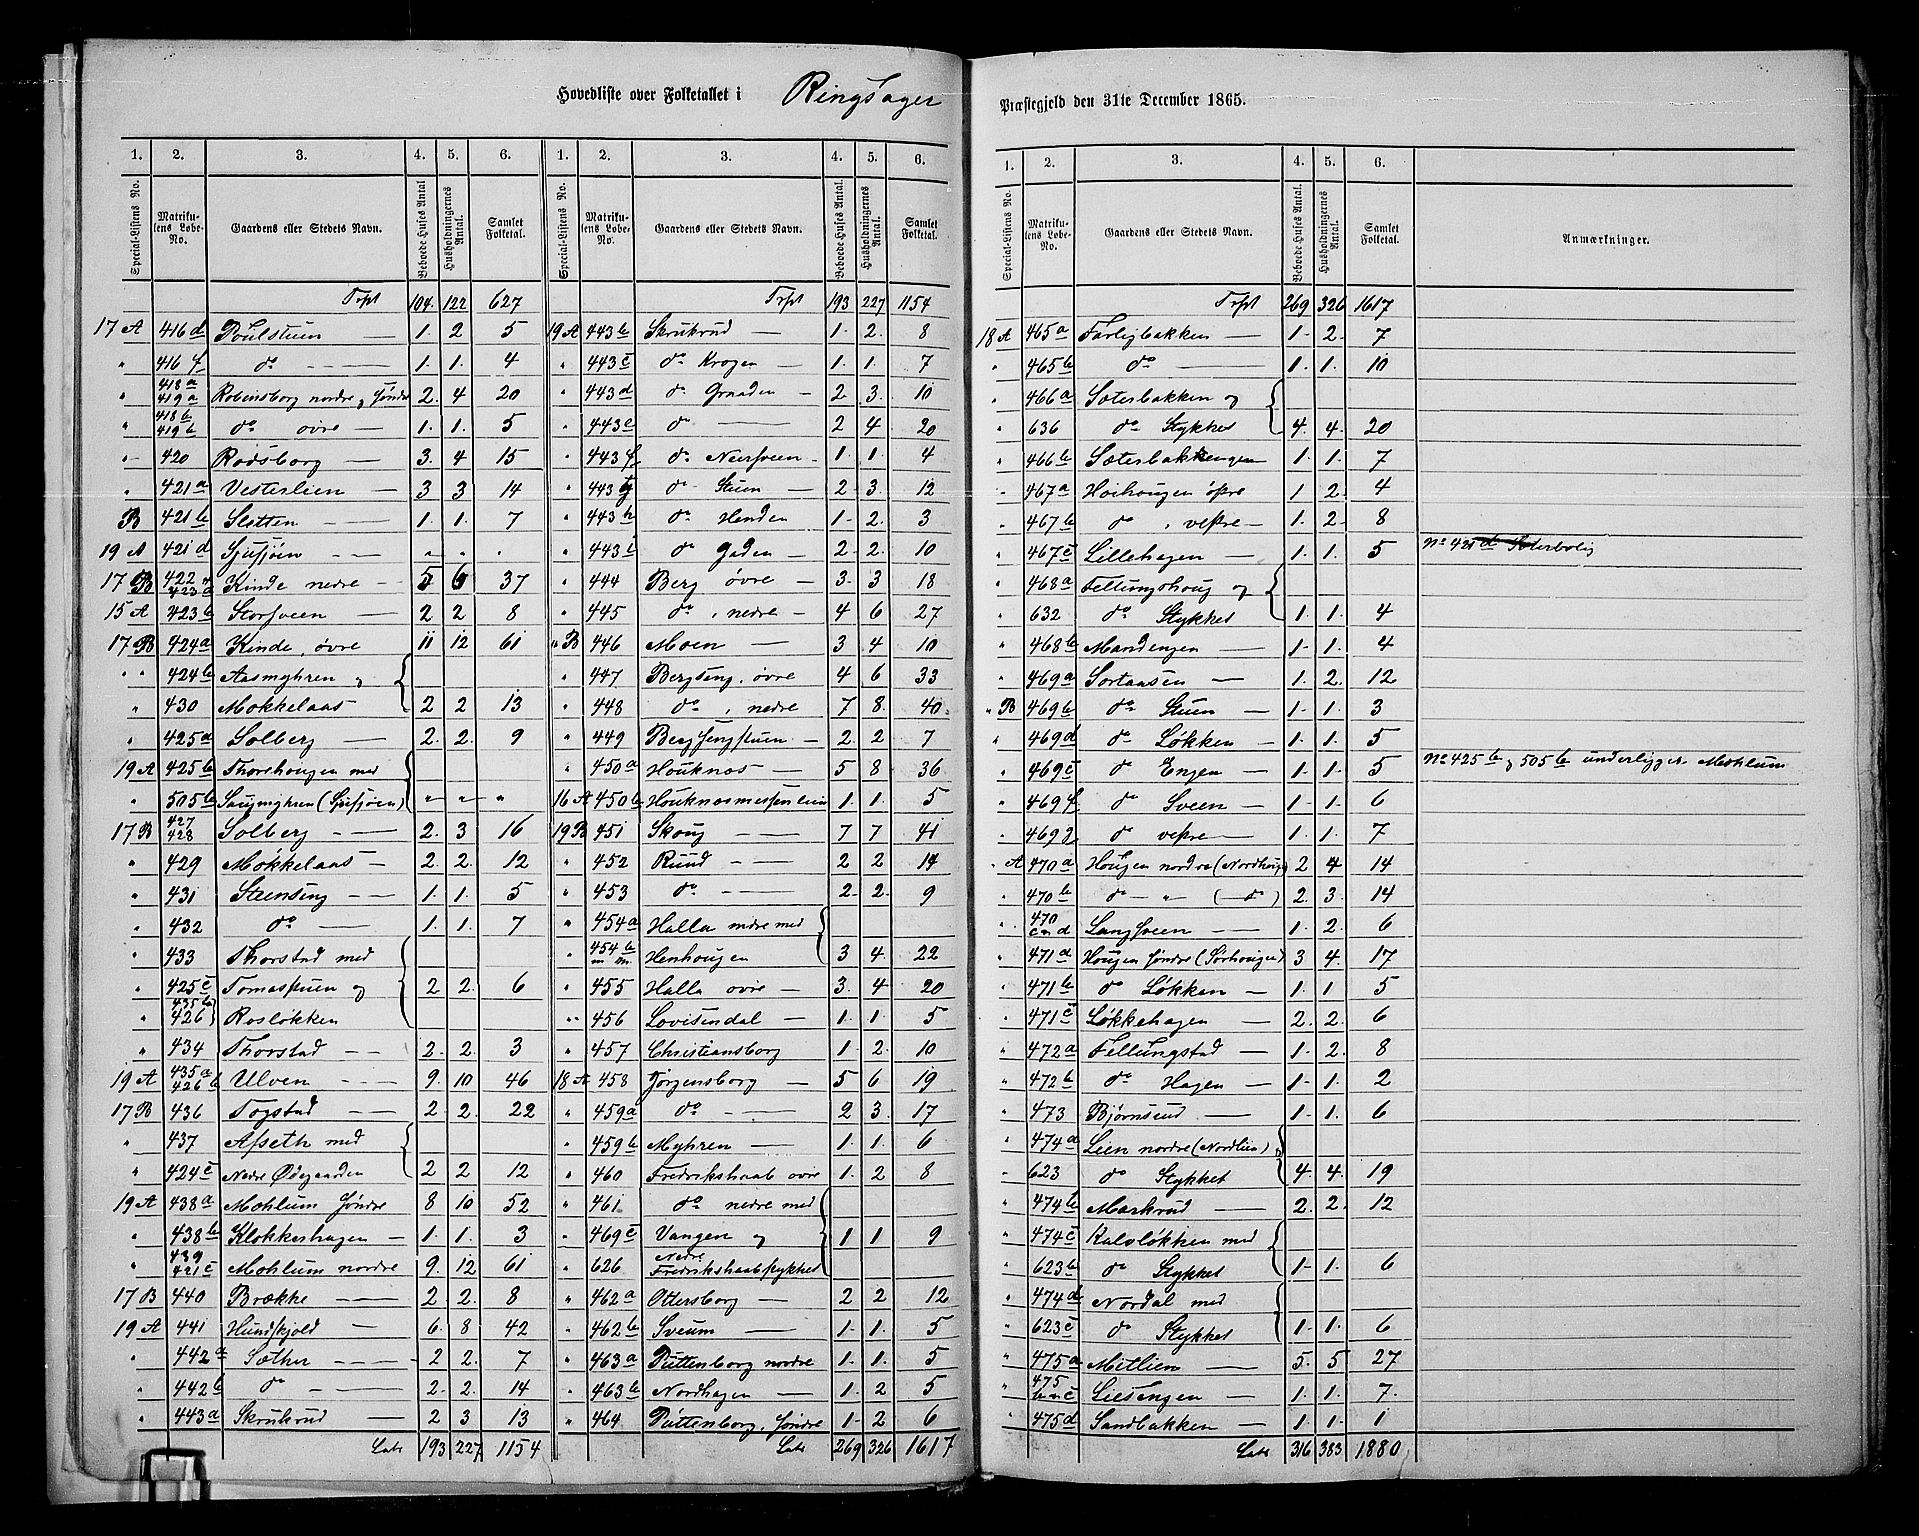 Hovedliste over Folketallet i Ringsager
Præstegjeld den 31te December 1865.
1. 2. 3. 4. 5. 6. 1. 2. 3. 4. 5. 6.
Special-Listens No. Matrikulens Løbe-No. Gaardens eller Stedets Navn. Beboede Huses Antal Husholdningernes Antal. Samlet Folketal. Special-Listens No. Matrikulens Løbe-No. Gaardens eller Stedets Navn. Beboede Huses Antal. Husholdningernes Antal. Samlet Folketal.
Trpt 104. 122 627
17 A 416 d Poulstuen 1. 2 5
" 416 f do 1. 1. 4
" 418 a 419 a Robinsborg nordre og søndre 2. 4 20
" 418 b 419 b do øvre 1. 1. 5
" 420 Rodsborg 3. 4 15
" 421 a Vesterlien 3 3 14
B 421 b Sletten 1. 1. 7
19 A 421 d Sjusjøen " " "
17 B 422 423 a Kinde nedre 5 6 37
15 A 423 b Storsveen 2 2 8
17 B 424 a Kinde, øvre 11 12 61
" " 424 b Aasmyhren og
" 430 Mokkelaas 2 2 13
" 425 a Solberg 2. 2. 9
19 A 425 b Thorehougen med
" 505 b Saugmyhren (Sjusjøen) " " "
17 B 427 428 Solberg 2. 3 16
" 429 Møkkelaas 2. 2. 12
" 431 Steensing 1. 1. 5
" 432 do 1. 1. 7
" 433 Thorstad med
" 425 c Tomasstuen og 2 2. 6
" 435 b 426 Rosløkken
" 434 Thorstad 2. 2. 3
19 A 435 a 426 b Ulven 9. 10 46
17 B 436 Togstad 2 2. 22
" 437 Afseth med
" 424 c Nedre Ødegaarden 2 2 12
19 A 438 a Mohlum søndre 8 10 52
" 438 b Klokkerhagen 1. 1. 3
" 439 421 c Mohlum nordre 9. 12 61
17 B 440 Brække 2 2. 8
19 A 441 Hundskjold 6. 8 42
" 442 a Sæther 2 2. 7
" 442 b do 2. 2. 14
" 443 a Skrukrud 2 3 13
Lats 193 227 1154
Trpt 193 227 1154
19 A 443 b Skrukrud 1. 2. 8
" 443 c do Krogen 1. 1. 7
" 443 d do Graaden 2 3. 10
" 443 e do 2 4 20
" 443 f do Neersveen 1. 1. 4
" 443 g do Stuen 2 3. 12
" 443 h do Henden 1. 2. 3
" 443 i do Gaden 2. 2. 10
" 444 Berg øvre 3. 3 18
" 445 do, nedre 4 6 27
" B 446 Moen 3 4 10
" 447 Bergseng, øvre 4 6 33
" 448 do, nedre 7 8. 40.
" 449 Bergsengstuen 2. 2 7
" 450 a Houknos 5 8 36
16 A 450 b Houknosmessenlien 1. 1. 5
19 B 451 Skoug 7 7 41
" 452 Rund 2 2 14
" 453 do 2. 2. 9
" 454 a Halla nedre med
" 454 b Henhougen 3 4. 22
" 455 Halla øvre 3. 4 20
" 456 Lovisendal 1. 1. 5
" 457 Christiansborg 1. 2. 10
18 A 458 Jørgensborg 5 6 19
" 459 a do 2 3. 17
" 459 b Myhren 1. 1. 6
" 460 Fredrikshaab øvre 1. 2 8
" 461 do nedre med
" 469 c Vangen og 1 1 9
" 626 Nedre Fredrikshaabstykket
" 462 a Ottersborg 2 2 12
" 462 b Sveum 1. 1. 5
" 463 a Puttenborg nordre 1. 1. 5
" 463 b Nordhagen 1. 2 5
" 464 Puttenborg, søndre 1. 2 6
Lats 269 326 1617
1. 2. 3. 4. 5. 6.
Special-Listens No. Matrikulens Løbe-No. Gaardens eller Stedets Navn. Beboede Huses Antal. Husholdningernes Antal. Samlet Folketal. Anmærkninger.
Trpt 269 326 1617
18 A 465 a Farligbakken 1. 2. 7
" 465 b do 1. 1. 10
" 466 a Sæterbakken og
" 636 do Stykket 4. 4. 20
" 466 b Sæterbakkengen 1. 1. 7
" 467 a Hoihougen østre 1 2. 4
" 467 b do, vestre 1. 2. 8
" 467 c Lillehagen 1. 1. 5 No 421 d Sæterbolig
" 468 a Fellungshoug og
" 632 do Stykket 1. 1. 4
" 468 b Mandengen 1. 1. 4
" 469 a Sortaasen 1. 2. 12
" B 469 b do Stuen 1. 1. 3
" 469 d do Løkken 1. 1. 5
" 469 e do Engen 1. 1. 5 No 425 b og 505 b underligger Mohlum
" 469 f do Sveen 1. 1. 6
" 469 g do vestre 1. 1. 7
" A 470 a Hougen nordre (Nordhougen) 2 4 14
" 470 b do " (do) 2. 3. 14
" 470 c n d Langsveen 1. 2 6
" 471 a Hougen søndre (Sørhougen) 3 4. 17
" 471 b do Løkken 1. 1 5
" 471 c Løkkehagen 2. 2. 6
" 472 a Fellungstad 1. 2. 8
" 472 b do Hagen 1. 1. 2
" 473 Bjørnsund 1. 1. 6
" 474 a Lien nordre (Nordlien)
" 623 do Stykket 4. 4. 19
" 474 b Markrud 2. 2. 12
" 474 c Kalvløkken med
" 623 b do Stykket 1. 1. 6
" 474 d Nordal med
" 623 c do Stykket 1. 1. 6
" 475 a Mitlien 5. 5 27
" 475 b n c Liesengen 1. 1. 7.
" 475 d Sandbakken 1. 1. 1
Lats 316 383 1880